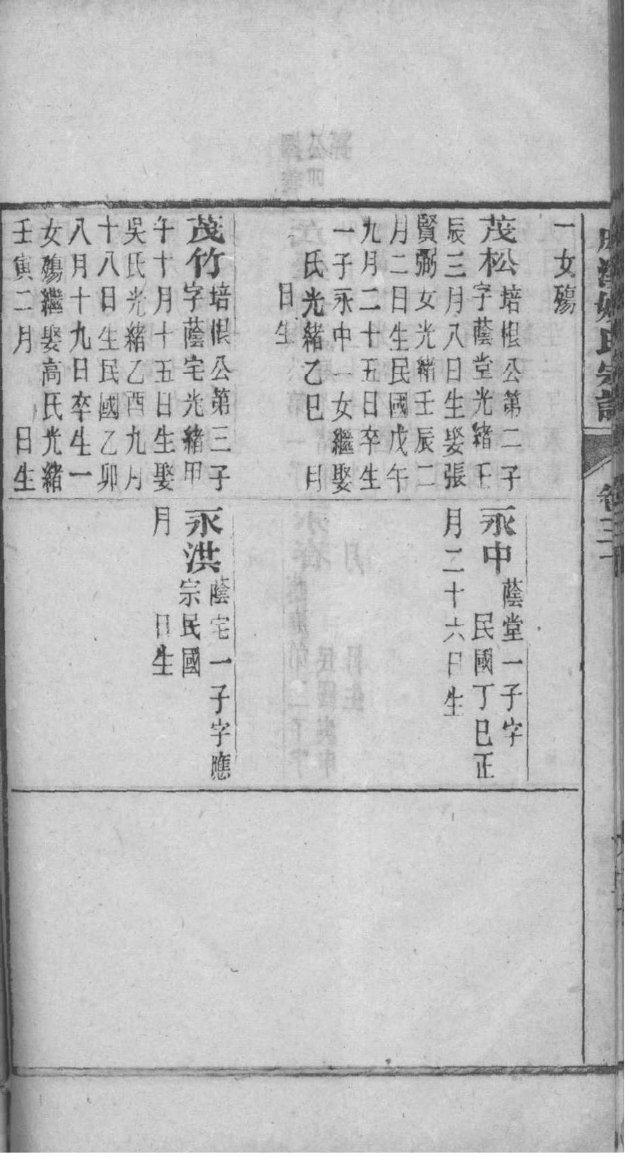 一女殤
茂松培根公第二子
字蔭堂光緒壬
辰三月八日生娶張
賢弼女光緒壬辰二
月二日生民國戊午
九月二十五日卒生
一子永中一女繼娶
氏光緒乙巳 月
日生
茂竹培根公第三子
字蔭宅光緒甲
午十月十五日生娶
吳氏光緒乙酉九月
十八日生民國乙卯
八月十九日卒生一
女殤繼娶高氏光緒
壬寅二月 日生
永中蔭堂一子字
民國丁巳正
月二十六日生
永洪蔭宅一子字應
宗民國
月 日生
氏宗譜
卷三十